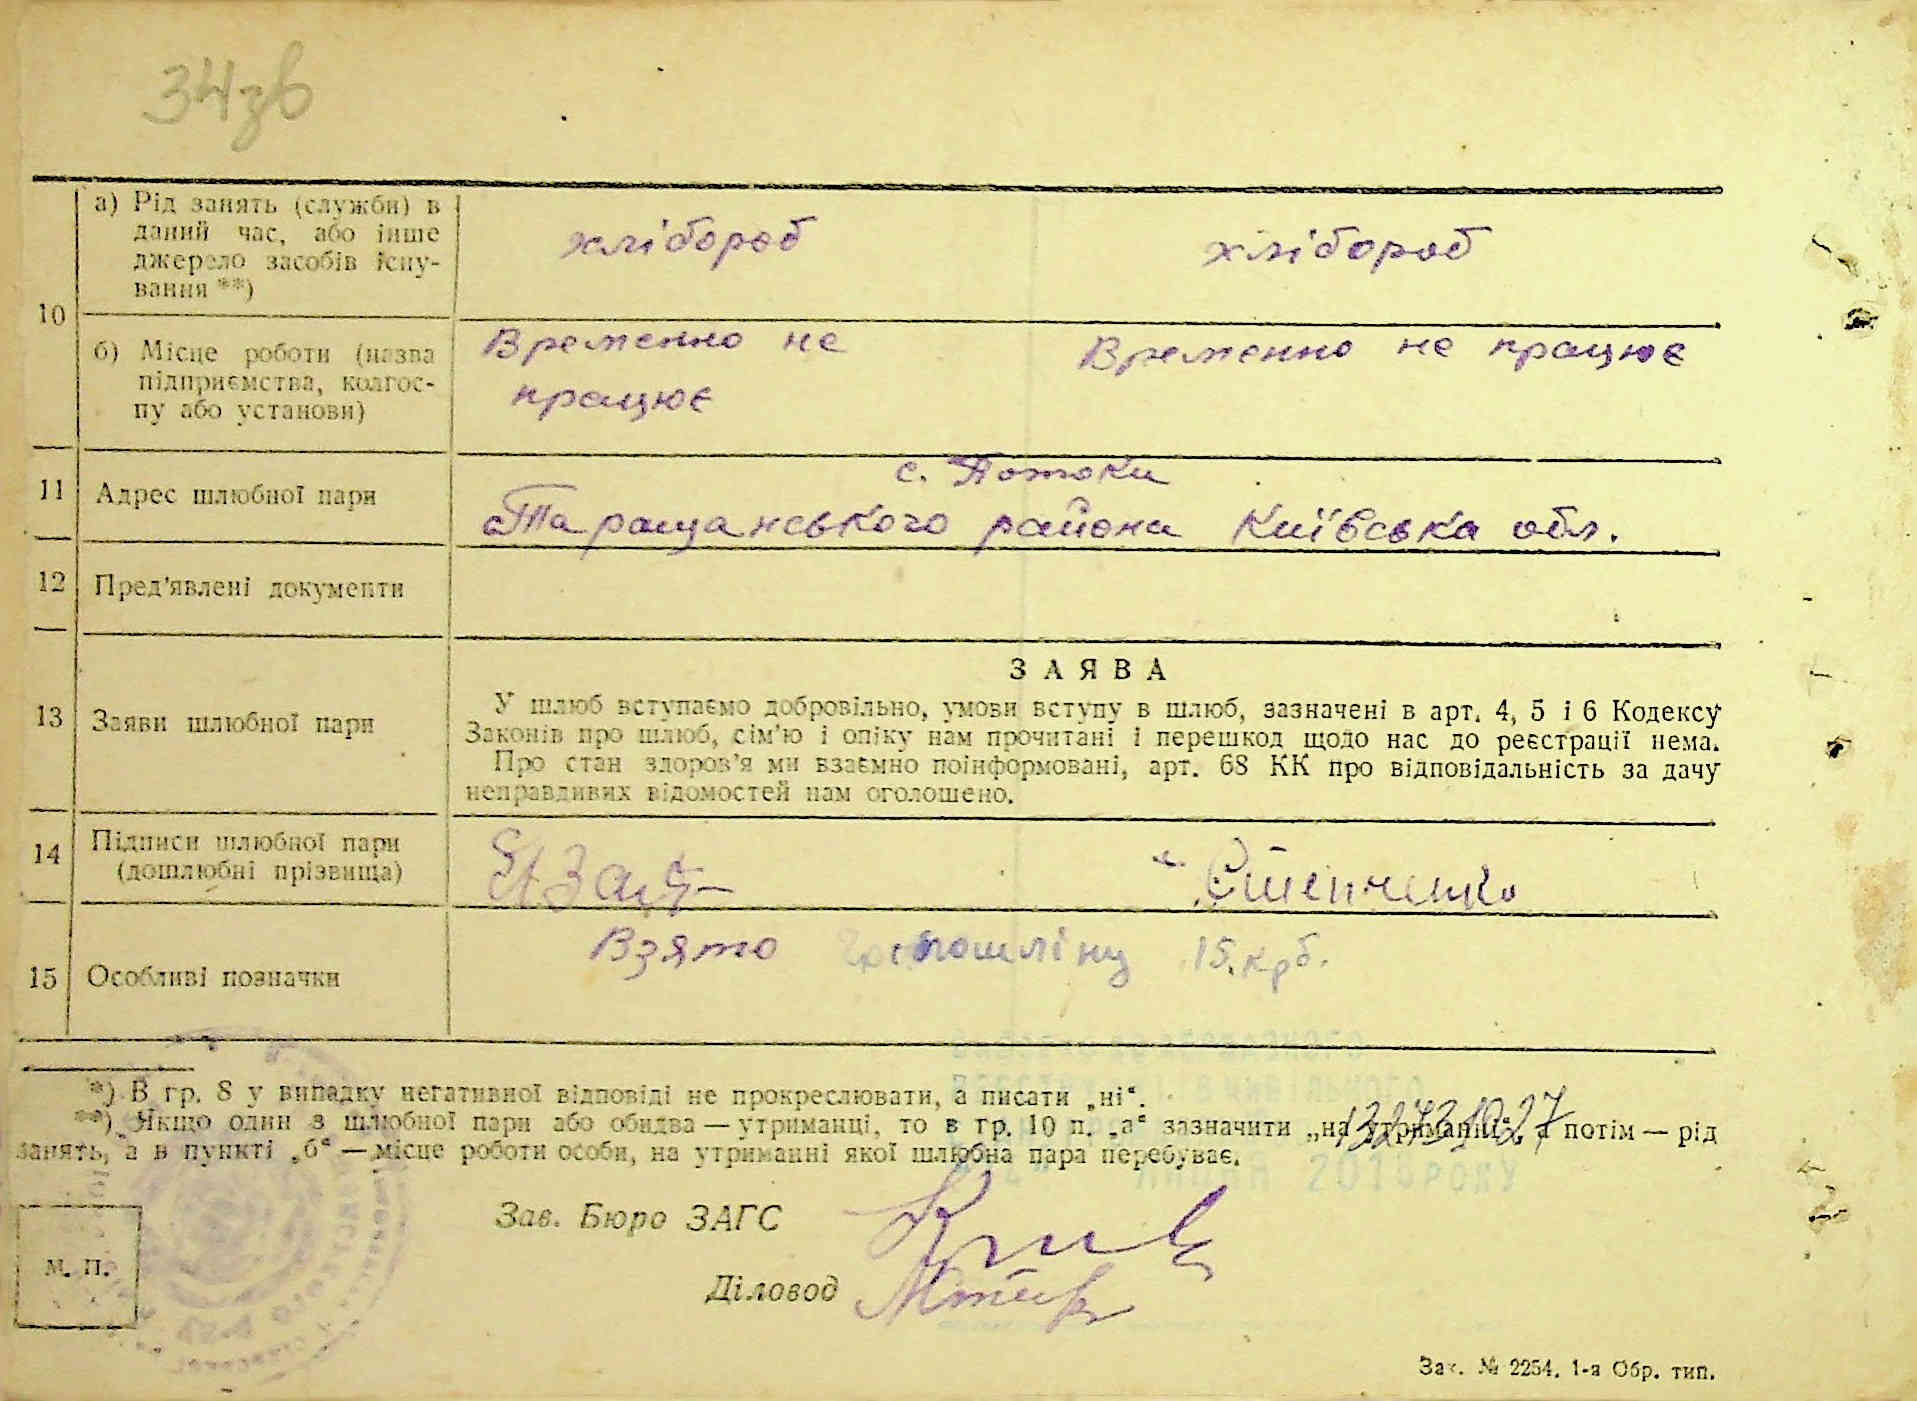 34зв
а) Рід занять (служби) в
даний час, або інше
джерело засобів існу-
вання **)
хлібороб
хлібороб
10
б) Місце роботи (назва
підприємства, колгос-
пу або установи)
Временно не
працює
Временно не працює
11
Адрес шлюбної пари
с. Потоки
Таращанського района Київська обл.
12
Пред'явлені документи
13
Заяви шлюбної пари
ЗАЯВА
У шлюб вступаємо добровільно, умови вступу в шлюб, зазначені в арт. 4, 5 і 6 Кодексу
Законів про шлюб, сім'ю і опіку нам прочитані і перешкод щодо нас до реєстрації нема.
Про стан здоров'я ми взаємно поінформовані, арт. 68 КК про відповідальність за дачу
неправдивих відомостей нам оголошено.
14
Підписи шлюбної пари
(дошлюбні прізвища)
15
Особливі позначки
Взято
пошліну 15. крб.
*) В гр. 8 у випадку негативної відповіді не прокреслювати, а писати „ні“.
**) Якщо один з шлюбної пари або обидва — утриманці, то в гр. 10 п. „а“ зазначити „на утриманні“, а потім — рід
занять, а в пункті „б“ — місце роботи особи, на утриманні якої шлюбна пара перебуває.
Зав. Бюро ЗАГС
Діловод
м. п.
Зак. № 2254. 1-а Обр. тип.